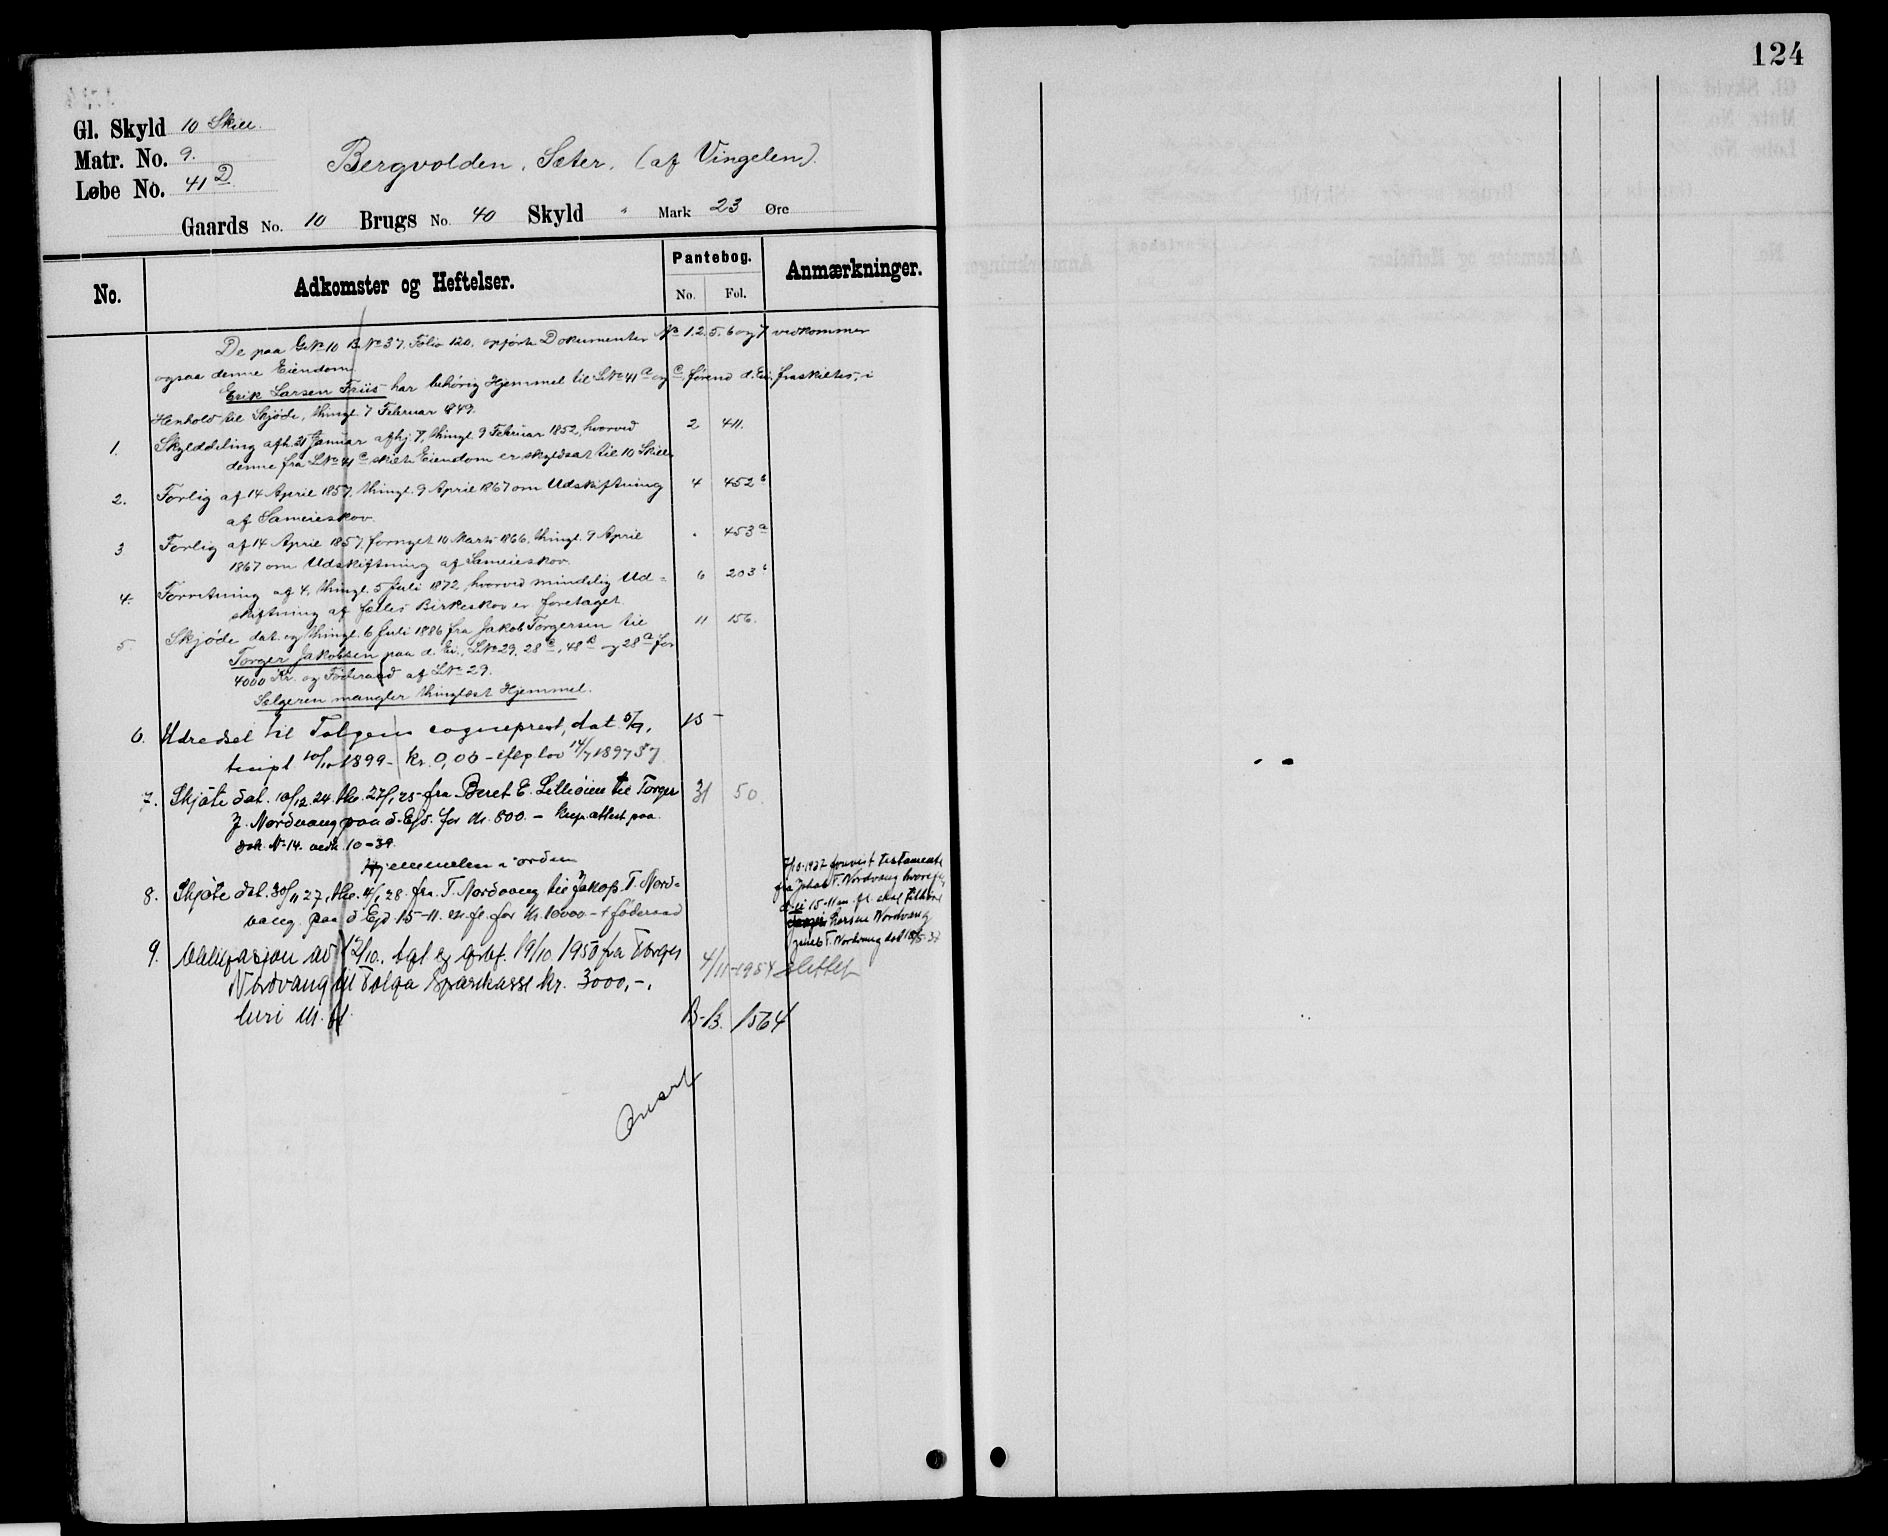 124
Gl. Skyld 10 Skill.
Matr. No. 9.
Løbe No. 41 D
Bergvolden, Sæter. (af Vingelen).
Gaards No. 10 Brugs No. 40 Skyld " Mark 23 Øre
No. Adkomster og Heftelser. Pantebog. No. Fol. Anmærkninger.
De paa GNo 10 B.No 37. Folio 120. opførte Dokumenter No 1. 2. 5. 6 og 7 vedkommer
ogsaa denne Eiendom.
Erik Larsen Friis har behørig Hjemmel til LNo 41 a og c, førend d. Ei. fraskiltes, i
Henhold til Skjøde, thingl. 7 Februar 1849.
1. Skylddeling afh. 21 Januar afhj. 7, thingl. 9 Februar 1852, hvorved 2 411.
denne fra LNo 41 c skilte Eiendom er skyldsat til 10 Skill.
2. Forlig af 14 April 1857, thingl. 9 April 1867 om Udskiftning 4 452 b
af Sameieskov.
3 Forlig af 14 April 1857, fornyet 10 Marts 1866, thingl. 9 April " 453 a
1867 om Udskiftning af Sameieskov.
4. Forretning af 4, thingl. 5 Juli 1872, hvorved mindelig Ud- 6 203 b
skiftning af fælles Birkeskov er foretaget.
5. Skjøde dat. og thingl. 6 Juli 1886 fra Jakob Torgersen til 11 156.
Torger Jakobsen paa d. Ei., LNo 29, 28 c, 48 b og 28 a for
4000 Kr. og Føderaad af LNo 29.
Sælgeren mangler thinglæst Hjemmel.
6. Udredsel til Tolgens sogneprest, dat. 5/9, 15 -
tingll 10/10 1899 - kr. 0,06 - efter lov 14/7 1897 § 7
7. Skjøte dat. 10/12 24. tlv. 27/1 25 fra Beret E. Lilleøien til Torger 31 50.
J. Nordvang paa d. Ejd. for kr. 800. - Kup. attest paa
dok. No 14. vedk. 10-39
Hjemmelen i orden
8. Skjøte dat. 30/11 27, tlv. 4/1 28. fra T. Nordvang til Jakop T. Nord-
vang paa d. Ejd 15-11. m. fl. for kr. 10000 - + føderaad
7/10-1937 forevist testamente
fra Jakob T. Nordvang hvorefter
d. ei 15-11 m. fl. skal tilhøre
Larsen Nordvang
T. Nordvang dat 18/5-37
9. Obligasjon av 12/10. tgl og 19/10. 1950 fra Torger 4/11-1954 slettet
Nordvang til Tolga Sparekasse kr. 3000,-.
m. fl. B-B. 1564